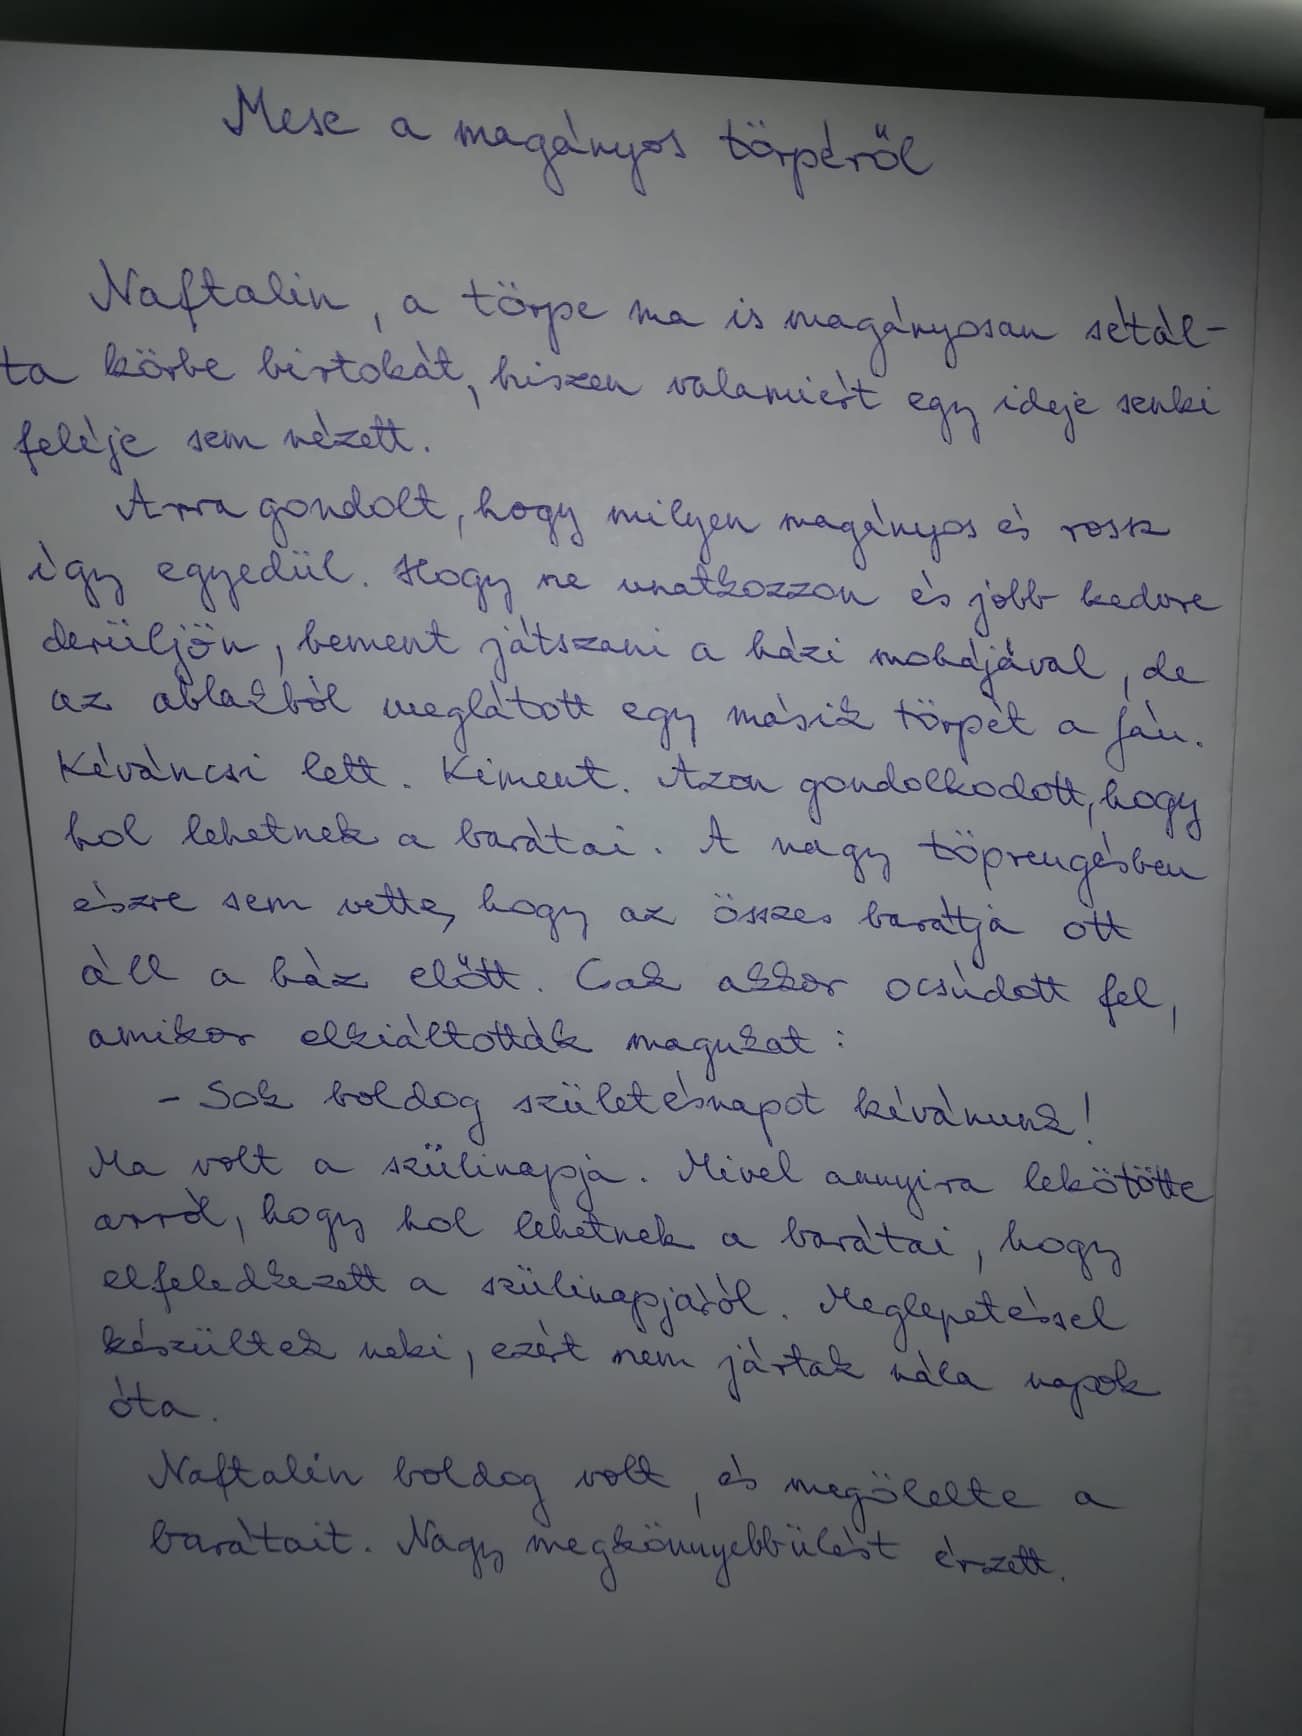 Mese a magányos törpéről
Naftalin, a törpe ma is magányosan sétál-
ta körbe birtokát, hiszen valamiért egy ideje senki
feléje sem nézett.
Arra gondolt, hogy milyen magányos és rossz
így egyedül. Hogy ne unatkozzon és jobb kedvre
derüljön, bement játszani a házi mókájával, de
az ablakból meglátott egy másik törpét a fán.
Kíváncsi lett. Kiment. Azon gondolkodott, hogy
hol lehetnek a barátai. A nagy töprengésben
észre sem vette, hogy az összes barátja ott
áll a ház előtt. Csak akkor ocsúdott fel,
amikor elkiáltották magukat:
- Sok boldog születésnapot kívánunk!
Ma volt a szülinapja. Mivel annyira lekötötte
arról, hogy hol lehetnek a barátai, hogy
elfeledkezett a szülinapjáról. Meglepetéssel
készültek neki, ezért nem jártak nála napok
óta.
Naftalin boldog volt, és megölelte a
barátait. Nagy megkönnyebbülést érzett.